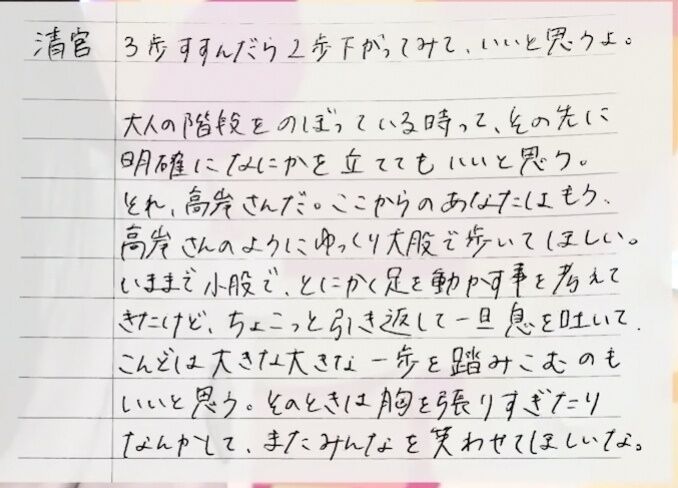 清宮 3歩すすんだら2歩下がってみて、いいと思うよ。
大人の階段をのぼっている時って、その先に
明確になにかを立ててもいいと思う。
それ、高岸さんだ。ここからのあなたはもう、
高岸さんのようにゆっくり大股で歩いてほしい。
いままで小股で、とにかく足を動かす事を考えて
きたけど、ちょこっと引き返して一旦息を吐いて、
こんどは大きな大きな一歩を踏みこむのも
いいと思う。そのときは胸を張りすぎたり
なんかして、またみんなを笑わせてほしいな。